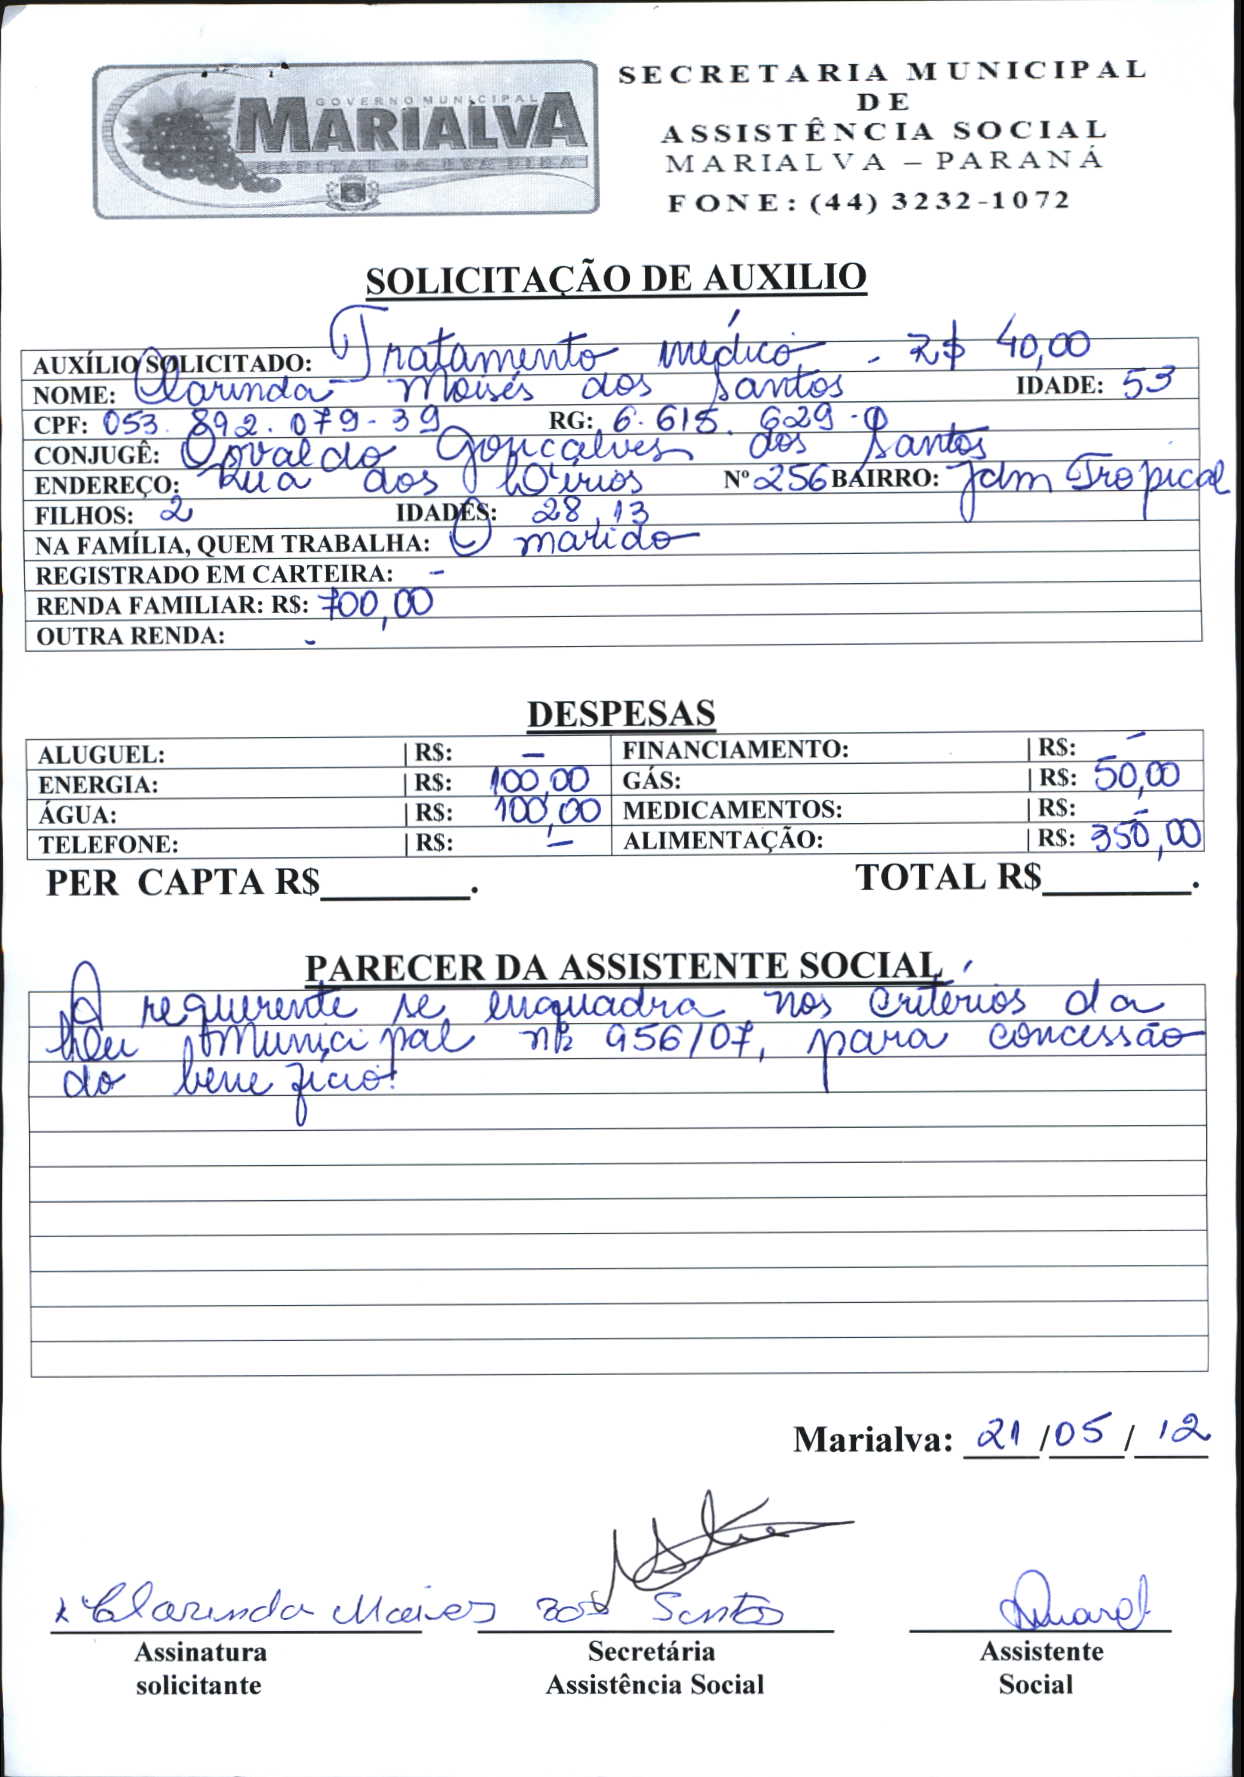 GOVERNO MUNICIPAL
MARIALVA
CAPITAL DA UVA FINA
SECRETARIA MUNICIPAL
DE
ASSISTÊNCIA SOCIAL
MARIALVA – PARANÁ
FONE: (44) 3232-1072
SOLICITAÇÃO DE AUXILIO
AUXÍLIO SOLICITADO: Tratamento médico - R$ 40,00
NOME: Clarinda Moisés dos Santos IDADE: 53
CPF: 053.892.079-39 RG: 6.615.629-0
CONJUGÊ: Osvaldo Gonçalves dos Santos
ENDEREÇO: Rua dos Lírios Nº 256 BAIRRO: Jdm Tropical
FILHOS: 2 IDADES: 28, 13
NA FAMÍLIA, QUEM TRABALHA: O marido
REGISTRADO EM CARTEIRA: -
RENDA FAMILIAR: R$: 700,00
OUTRA RENDA: -
DESPESAS
ALUGUEL: | R$: - FINANCIAMENTO: | R$: -
ENERGIA: | R$: 100,00 GÁS: | R$: 50,00
ÁGUA: | R$: 100,00 MEDICAMENTOS: | R$: -
TELEFONE: | R$: - ALIMENTAÇÃO: | R$: 350,00
PER CAPTA R$________. TOTAL R$________.
PARECER DA ASSISTENTE SOCIAL
A requerente se enquadra nos critérios da
Lei Municipal nº 956/07, para concessão
do benefício.
Marialva: 21/05/12
x Clarinda Moises dos Santos
Assinatura Secretária Assistente
solicitante Assistência Social Social